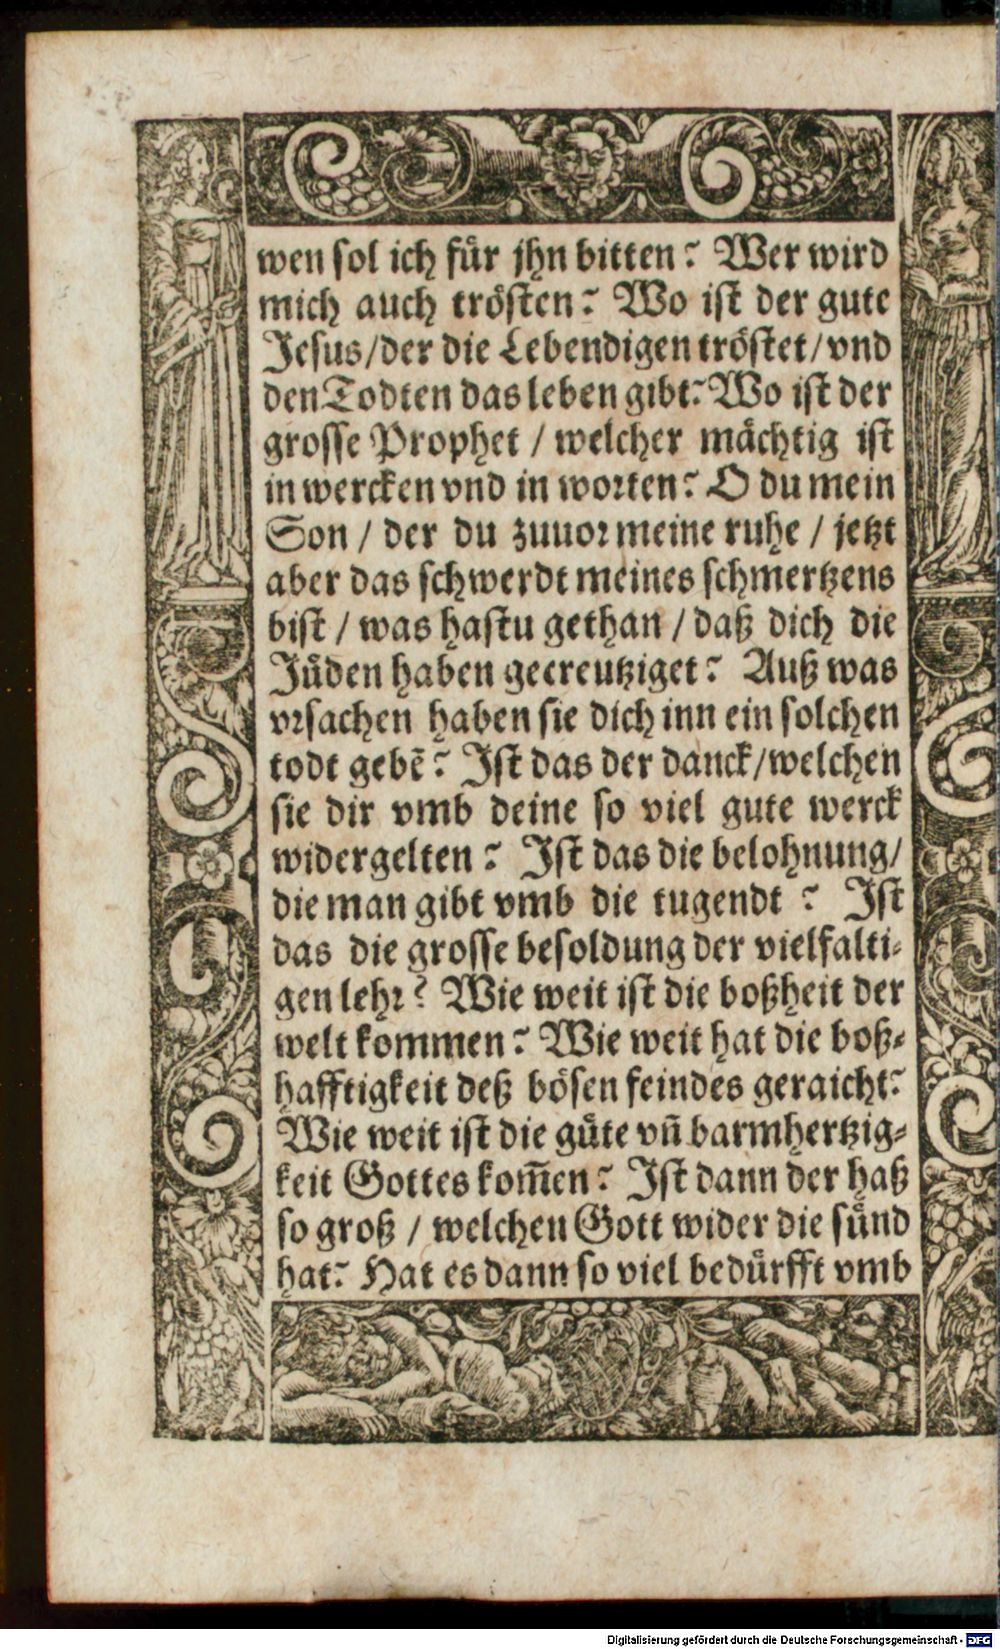 wen sol ich für jhn bitten? Wer wird
mich auch trösten? Wo ist der gute
Jesus/der die Lebendigen tröstet/vnd
den Todten das leben gibt? Wo ist der
grosse Prophet / welcher mächtig ist
in wercken vnd in worten? O du mein
Son / der du zuuor meine ruhe / jetzt
aber das schwerdt meines schmertzens
bist / was hastu gethan / daß dich die
Jüden haben gecreutziget? Auß was
vrsachen haben sie dich inn ein solchen
todt gebẽ? Ist das der danck/welchen
sie dir vmb deine so viel gute werck
widergelten? Ist das die belohnung/
die man gibt vmb die tugendt? Ist
das die grosse besoldung der vielfalti-
gen lehr? Wie weit ist die boßheit der
welt kommen? Wie weit hat die boß-
hafftigkeit deß bösen feindes geraicht?
Wie weit ist die güte vñ barmhertzig-
keit Gottes kom̃en? Ist dann der haß
so groß / welchen Gott wider die sünd
hat? Hat es dann so viel bedürfft vmb
Digitalisierung gefördert durch die Deutsche Forschungsgemeinschaft - DFG